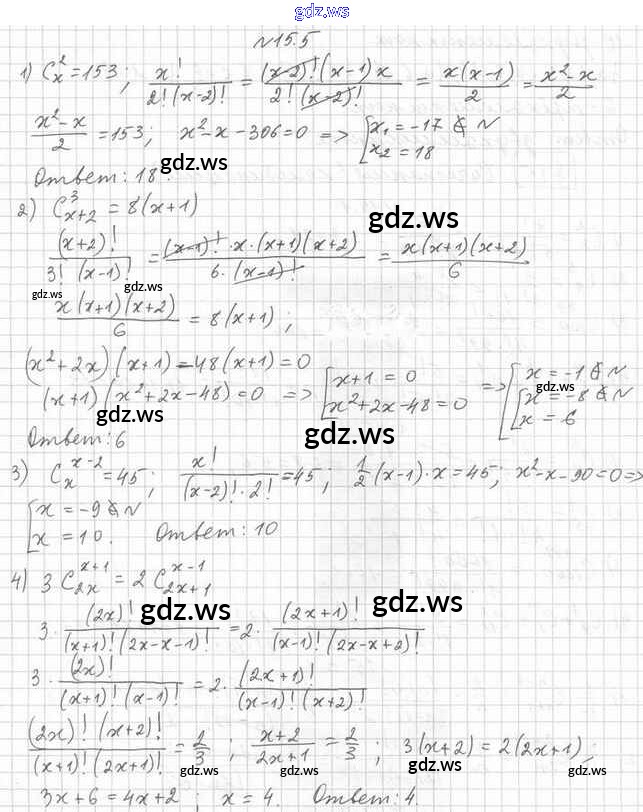 gdz.ws
№15.5
1) C_x^2 = 153; x!/(2!(x-2)!) = ((x-2)!(x-1)x)/(2!(x-2)!) = x(x-1)/2 = (x²-x)/2
(x²-x)/2 = 153; x²-x-306=0 => [x₁ = -17 ∉ N
x₂ = 18
Ответ: 18.
gdz.ws
2) C_{x+2}^3 = 8(x+1)
gdz.ws
(x+2)!/(3!(x-1)!) = ((x-1)!·x·(x+1)(x+2))/(6·(x-1)!) = x(x+1)(x+2)/6
gdz.ws gdz.ws
x(x+1)(x+2)/6 = 8(x+1);
(x²+2x)(x+1)-48(x+1)=0
(x+1)(x²+2x-48)=0 => [x+1=0
x²+2x-48=0 => [x = -1 ∉ N
[x = -8 ∉ N
x = 6
gdz.ws gdz.ws gdz.ws
Ответ: 6
3) C_x^{x-2} = 45; x!/((x-2)!·2!) = 45; 1/2(x-1)·x = 45; x²-x-90=0 =>
[x = -9 ∉ N
x = 10. Ответ: 10
gdz.ws
4) 3C_{2x}^{x+1} = 2C_{2x+1}^{x-1}
gdz.ws gdz.ws
3·(2x)!/((x+1)!(2x-x-1)!) = 2·(2x+1)!/((x-1)!(2x-x+2)!
3·(2x)!/((x+1)!(x-1)!) = 2·(2x+1)!/((x-1)!(x+2)!
(2x)!(x+2)!/((x+1)!(2x+1)!) = 2/3; (x+2)/(2x+1) = 2/3; 3(x+2) = 2(2x+1);
gdz.ws gdz.ws gdz.ws
3x+6=4x+2; x=4. Ответ: 4.